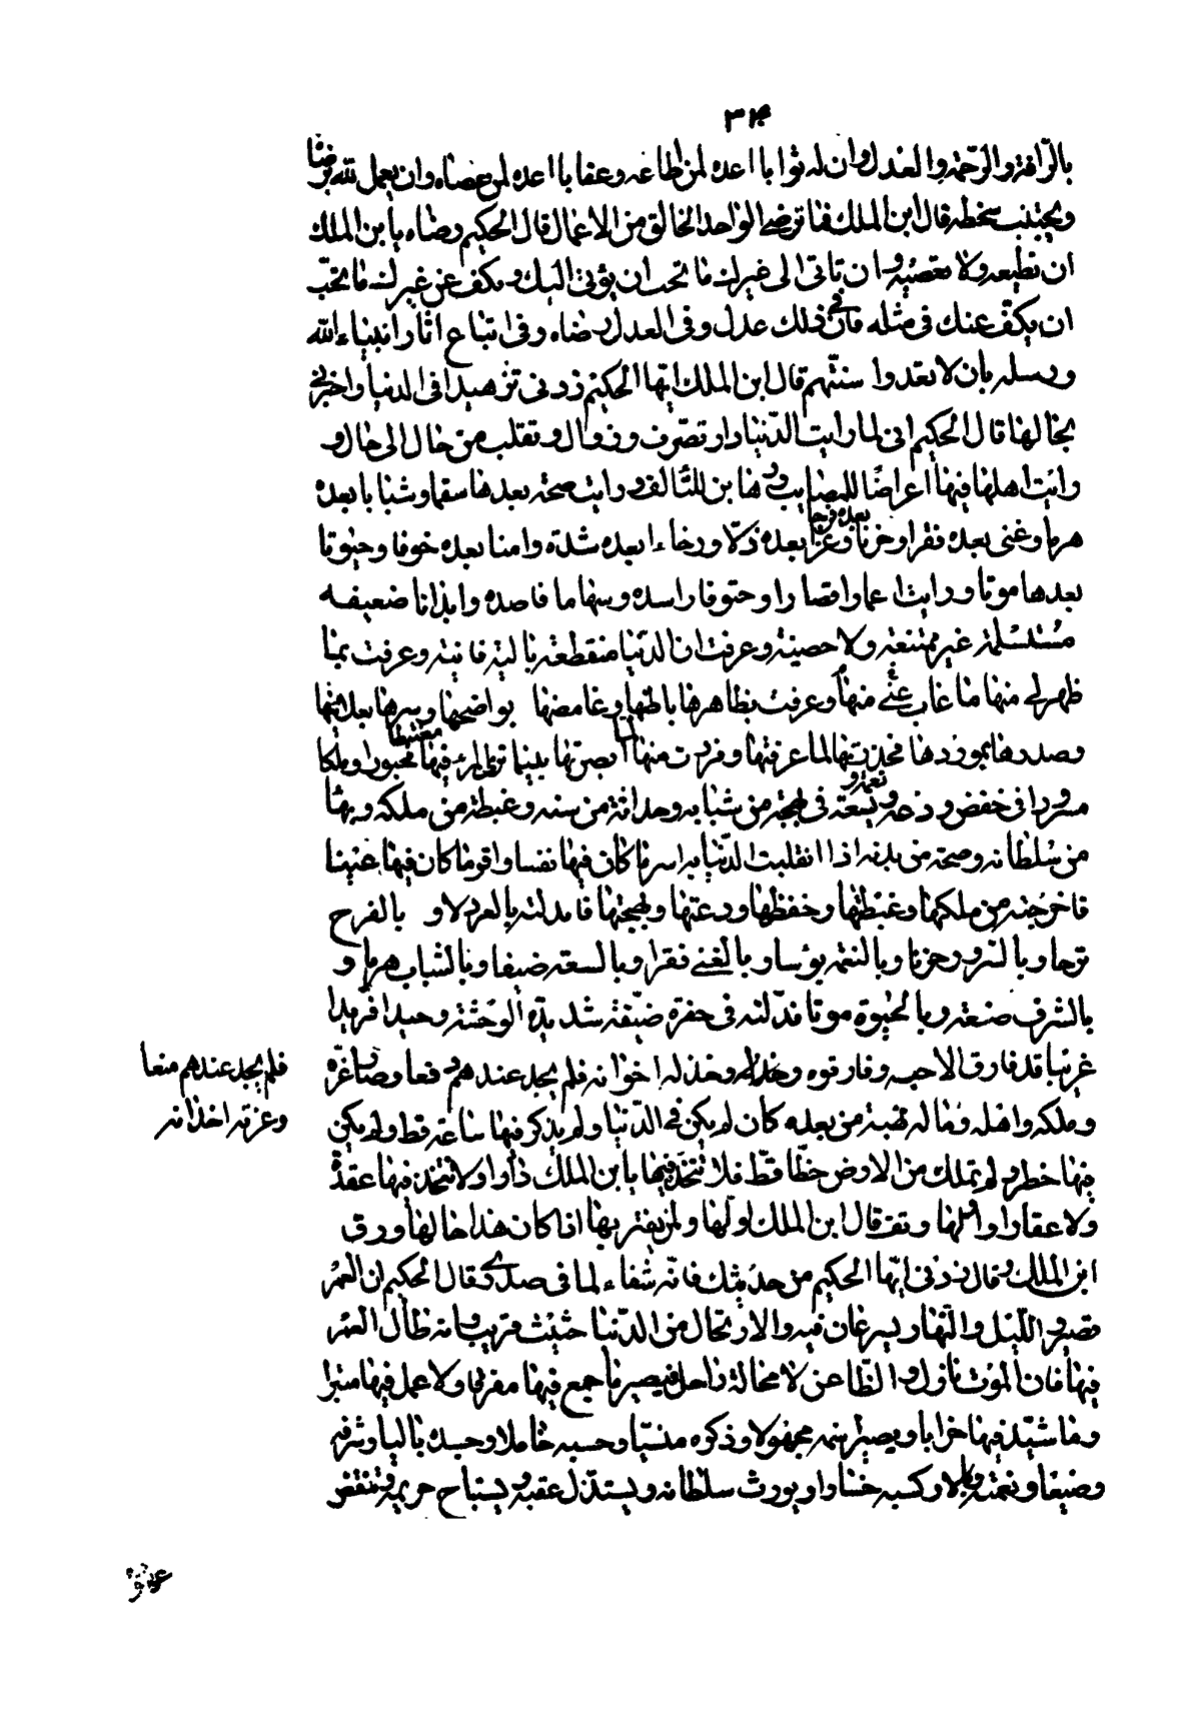 ٣١٤
بالرّافة والرّحمة والعدل وان له ثوابا اعده لمن اطاعه وعقابا اعده لمن عصاه وان يعمل لله برضاه
ويجتنب سخطه قال ابن الملك فما يرضى الواحد الخالق من الاعمال قال الحكيم رضاه يا بن الملك
ان تطيعه ولا تعصيه وان تاتى الى غيرك ما تحب ان يؤتى اليك وتكف عن غيرك ما تحبّ
ان يكفّ عنك فى مثله فان فى ذلك عدل وفى العدل رضاه وفى اتباع اثار انبياء الله
ورسله بان لا تعدوا سنتهم قال ابن الملك ايّها الحكيم زدنى تزهيدا فى الدنيا واخبرنى
بحالها قال الحكيم انى لما رايت الدّنيا دار تصرّف وزوال وتقلب من حال الى حال و
رايت اهلها فيها اغراضًا للمصايب ورهاين للمتالف ورايت صحة بعدها سقما وشبابا بعده
هرما وغنى بعده فقرا وحزنا بعده فرحا وعزّا بعده ذلّا ورخاء بعده شدة وامنا بعده خوفا وحيوتا
بعدها موتا ورايت اعمارا قصارا وحتوفا راصده وسهاما قاصده وابدانا ضعيفه
مستسلمة غير ممتنعة ولا حصينة وعرفت ان الدّنيا منقطعة بالية فانية وعرفت بما
ظهر لى منها ما غاب عنّى منها وعرفت بظاهرها باطنها وغامضها بواضحها وسرها بعلانيتها
وصدورها بورودها فحذرتها لما عرفتها وفررت منها لما ابصرتها بينما ترى المرء فيها مغتبطا محبورا وملكا
مسرورا فى خفض ودعة ونعمة وسعة فى بهجة من شبابه وحداثة من سنه وغبطة من ملكه وبهاء
من سلطانه وصحة من بدنه اذا انقلبت الدّنيا به اسرّ ما كان فيها نفسا واقرّ ما كان فيها عينا
فاخرجته من ملكها وغبطتها وخفظها ودعتها وبهجتها فابدلته بالعز ذلا و بالفرح
ترحا وبالسرور حزنا وبالنعمة بؤسا وبالغنى فقرا وبالسعة ضيقا وبالشباب هرما و
بالشرف ضعة وبالحيوة موتا فدلته فى حفرة ضيّقة شديدة الوحشة وحيدا فريدا
غريبا قد فارق الاحبه وفارقوه وخذله اخوانه فلم يجد عندهم دفعا وصار عزّه
وملكه واهله وماله نهبة من بعده كان لم يكن فى الدّنيا ولم يذكر فيها ساعة قط ولم يكن
فيها خطر ولم تملك من الارض حظّا قطّ فلا تتخذ فيها يا بن الملك دارا ولا تتخذن فيها عقدة
ولا عقارا واف لها وتف قال ابن الملك اف لها ولمن يغتر بها اذا كان هذا حالها ورق
ابن الملك وقال زدنى ايّها الحكيم من حديثك فانّه شفاء لما فى صدرى قال الحكيم ان العمر
قصير والليل والنّهار يسرعان فيه والارتحال من الدّنيا حثيث قريب وانه ان طال العمر
فيها فان الموت نازل والظّاعن لا محالة راحل فيصير ما جمع فيها مفرقا وما عمل فيها متبرا
وما شيّد فيها خرابا ويصير اسمه مجهولا وذكره منسيّا وحسبه خاملا وجسده باليا وشرفه
وضيعا ونعمته وبالا وكسبه خسارا ويورث سلطانه ويستذل عقبه ويستباح حريمه وتنقض
فلم يجد عندهم منعا
وعزته اخذانه
عهوده